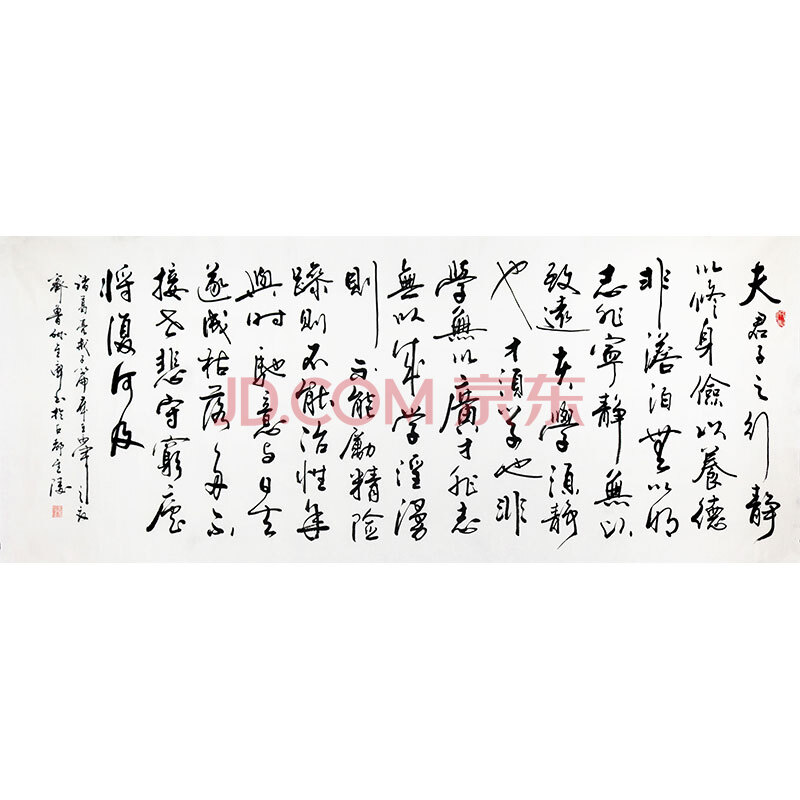 夫君子之行静
以修身儉以養德
非澹泊無以明
志非寧静無以
致遠夫學須静
也才須学也非
學無以廣才非志
無以成学淫漫
則不能勵精险
躁則不能治性年
與时馳意与日去
遂成枯落多不
接世悲守窮廬
将復何及
诸葛亮戒子篇
齊魯书於古都金陵
JD.COM 京东